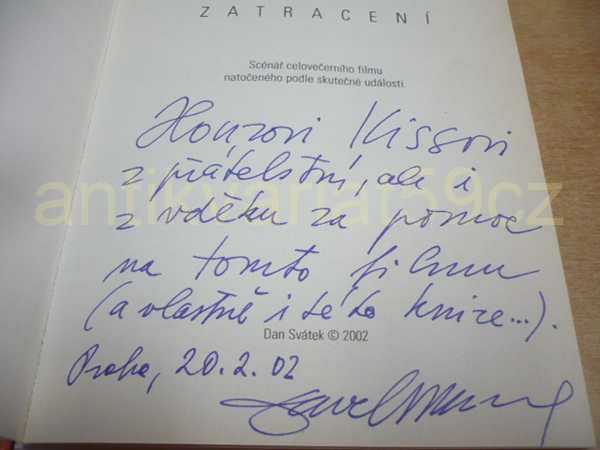 ZATRACENÍ
Scénář celovečerního filmu
natočeného podle skutečné události.
Honzovi Kissovi
z přátelství, ale i
z vděku za pomoc
na tomto filmu
(a vlastně i této knize...).
Dan Svátek © 2002
Praha, 20.2.02
antikvariat59cz